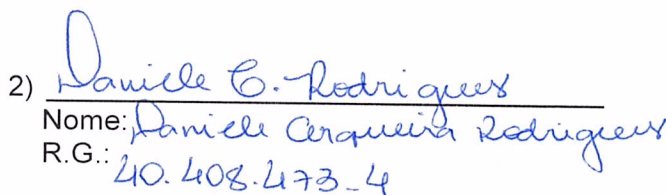 2) Daniele C. Rodrigues
Nome: Daniele Cerqueira Rodrigues
R.G.: 40.408.473-4